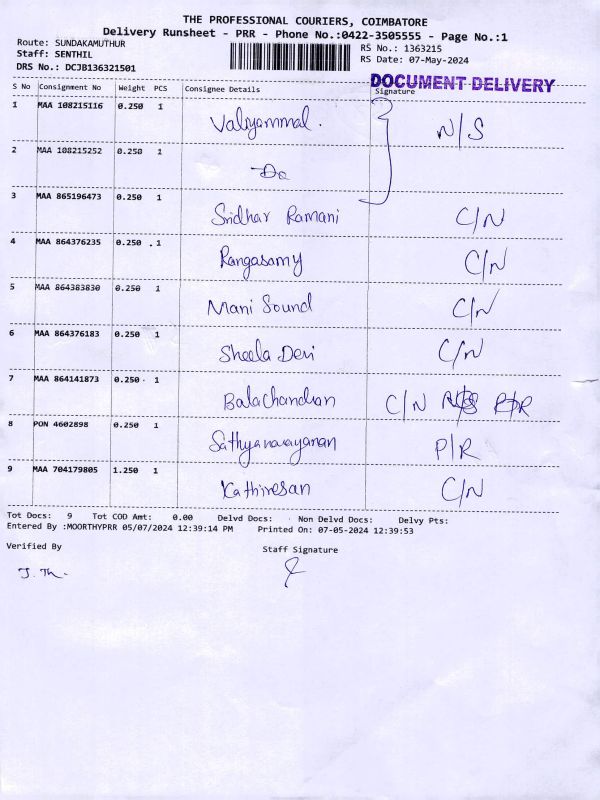 THE PROFESSIONAL COURIERS, COIMBATORE
Delivery Runsheet - PRR - Phone No.:0422-3505555 - Page No.:1
Route: SUNDAKAMUTHUR
Staff: SENTHIL
DRS No.: DCJB136321501
RS No.: 1363215
RS Date: 07-May-2024
DOCUMENT DELIVERY
S No Consignment No Weight PCS Consignee Details Signature
1 MAA 108215116 0.250 1 Valiyammal. N/S
2 MAA 108215252 0.250 1 Do
3 MAA 865196473 0.250 1 Sridhar Ramani C/N
4 MAA 864376235 0.250 1 Rangasamy C/N
5 MAA 864383830 0.250 1 Mani Sound C/N
6 MAA 864376183 0.250 1 Sheela Devi C/N
7 MAA 864141873 0.250 1 Balachandran C/N
8 PON 4602898 0.250 1 Sathyanarayanan P/R
9 MAA 704179805 1.250 1 Kathiresan C/N
Tot Docs: 9 Tot COD Amt: 0.00 Delvd Docs: Non Delvd Docs: Delvy Pts:
Entered By :MOORTHYPRR 05/07/2024 12:39:14 PM Printed On: 07-05-2024 12:39:53
Verified By
Staff Signature